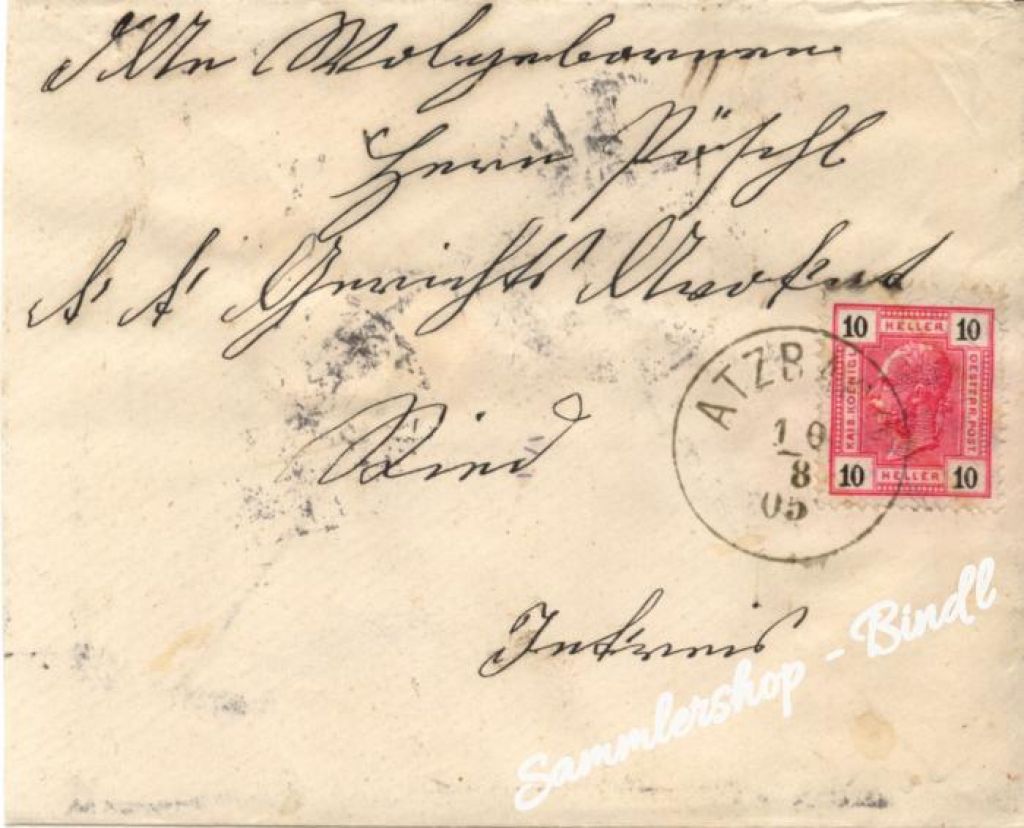 Wolgebornen
Herrn Pöschl
k k Gerichts Avokat
Ried
Inkreis
10 HELLER 10
KAIS. KOENIGL.
OESTERR. POST
10 HELLER 10
ATZB
10
8
05
Sammlershop - Bindl